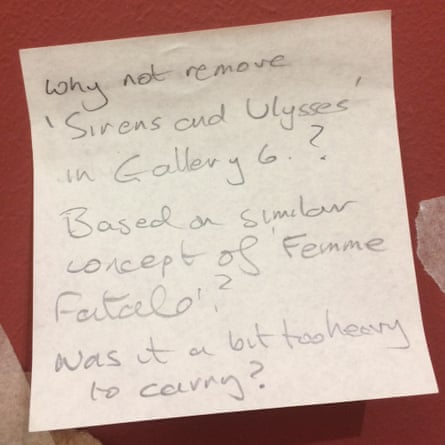 Why not remove
'Sirens and Ulysses'
in Gallery 6.?
Based on similar
concept of 'Femme
Fatale'?
Was it a bit too heavy
to carry?